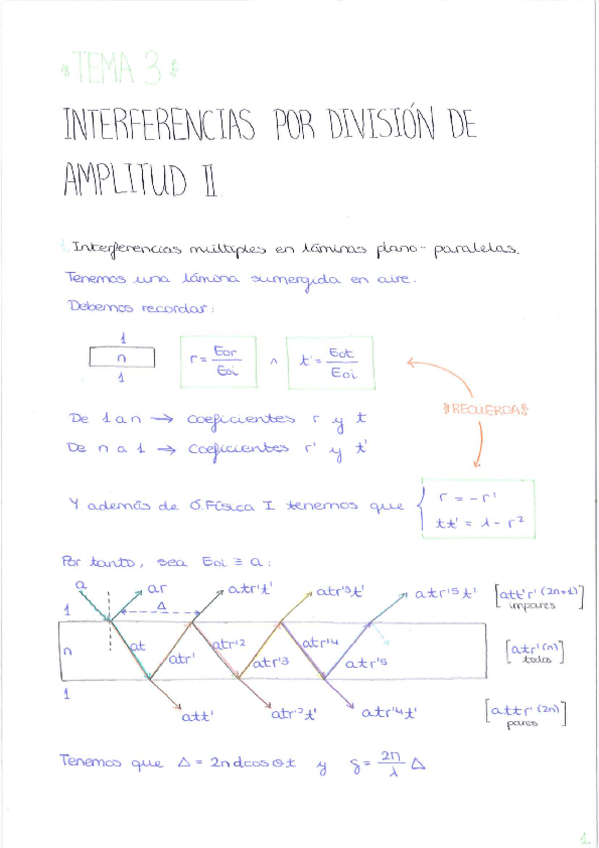 *TEMA 3*
INTERFERENCIAS POR DIVISIÓN DE
AMPLITUD II
1. Interferencias múltiples en láminas plano-paralelas.
Tenemos una lámina sumergida en aire.
Debemos recordar:
1
n
1
r = Eor/Eoi ∧ t' = Eot/Eoi
*RECUERDA*
De 1 a n → coeficientes r y t
De n a 1 → coeficientes r' y t'
Y además de Ó.Física I tenemos que { r = -r'
tt' = 1 - r²
Por tanto, sea Eoi ≡ a:
a ar atr't' atr'³t' atr'⁵t' [att'r'(2n+1)]
impares
1 Δ
n at atr' atr'² atr'³ atr'⁴ atr'⁵ [atr'(n)]
todos
1
att' atr'²t' atr'⁴t' [attr'(2n)]
pares
Tenemos que Δ = 2ndcosθt y δ = 2π/λ Δ
1.